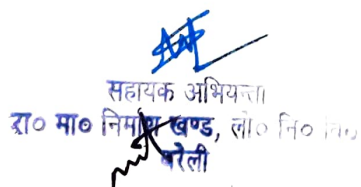 सहायक अभियन्ता
रा० मा० निर्माण खण्ड, लो० नि० वि०
बरेली